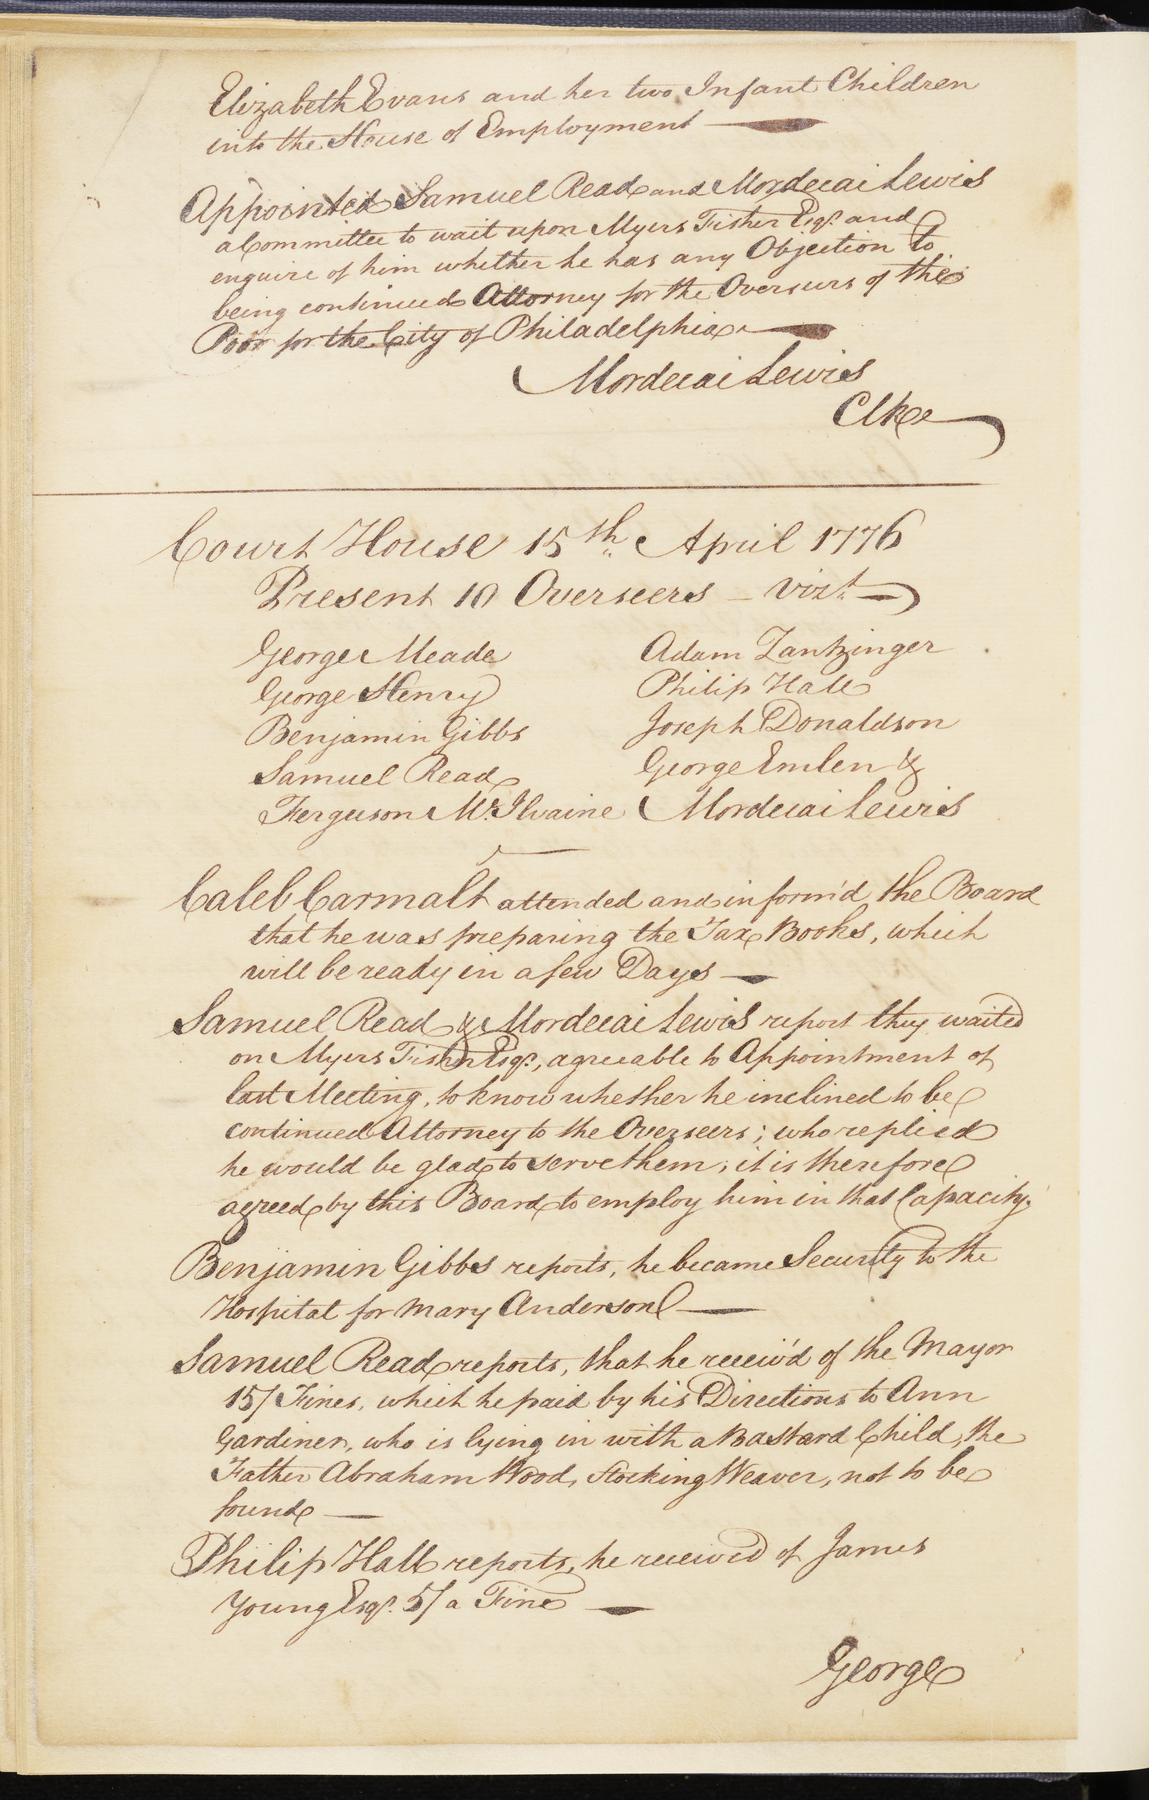 Elizabeth Evans and her two Infant Children
into the House of Employment
Appointed Samuel Read and Mordecai Lewis
a Committee to wait upon Myers Fisher Esqr. and
enquire of him whether he has any Objection to
being continued Attorney for the Overseers of the
Poor for the City of Philadelphia
Mordecai Lewis
Clke
Court House 15th April 1776
Present 10 Overseers – vizt
George Meade
George Henry
Benjamin Gibbs
Samuel Read
Ferguson Mc.Ilvaine
Adam Zantzinger
Philip Hall
Joseph Donaldson
George Emlen &
Mordecai Lewis
Caleb Carmalt attended and inform'd the Board
that he was preparing the Tax Books, which
will be ready in a few Days —
Samuel Read & Mordecai Lewis report they waited
on Myers Fisher Esqr., agreeable to Appointment of
last Meeting, to know whether he inclined to be
continued Attorney to the Overseers; who replied
he would be glad to serve them; it is therefore
agreed by this Board to employ him in that Capacity.
Benjamin Gibbs reports, he became Security to the
Hospital for Mary Anderson —
Samuel Read reports, that he receiv'd of the Mayor
15/ Fines, which he paid by his Directions to Ann
Gardiner, who is lying in with a Bastard Child, the
Father Abraham Wood, Stocking Weaver, not to be
found —
Philip Hall reports, he received of James
Young Esqr. 5/ a Fine —
George